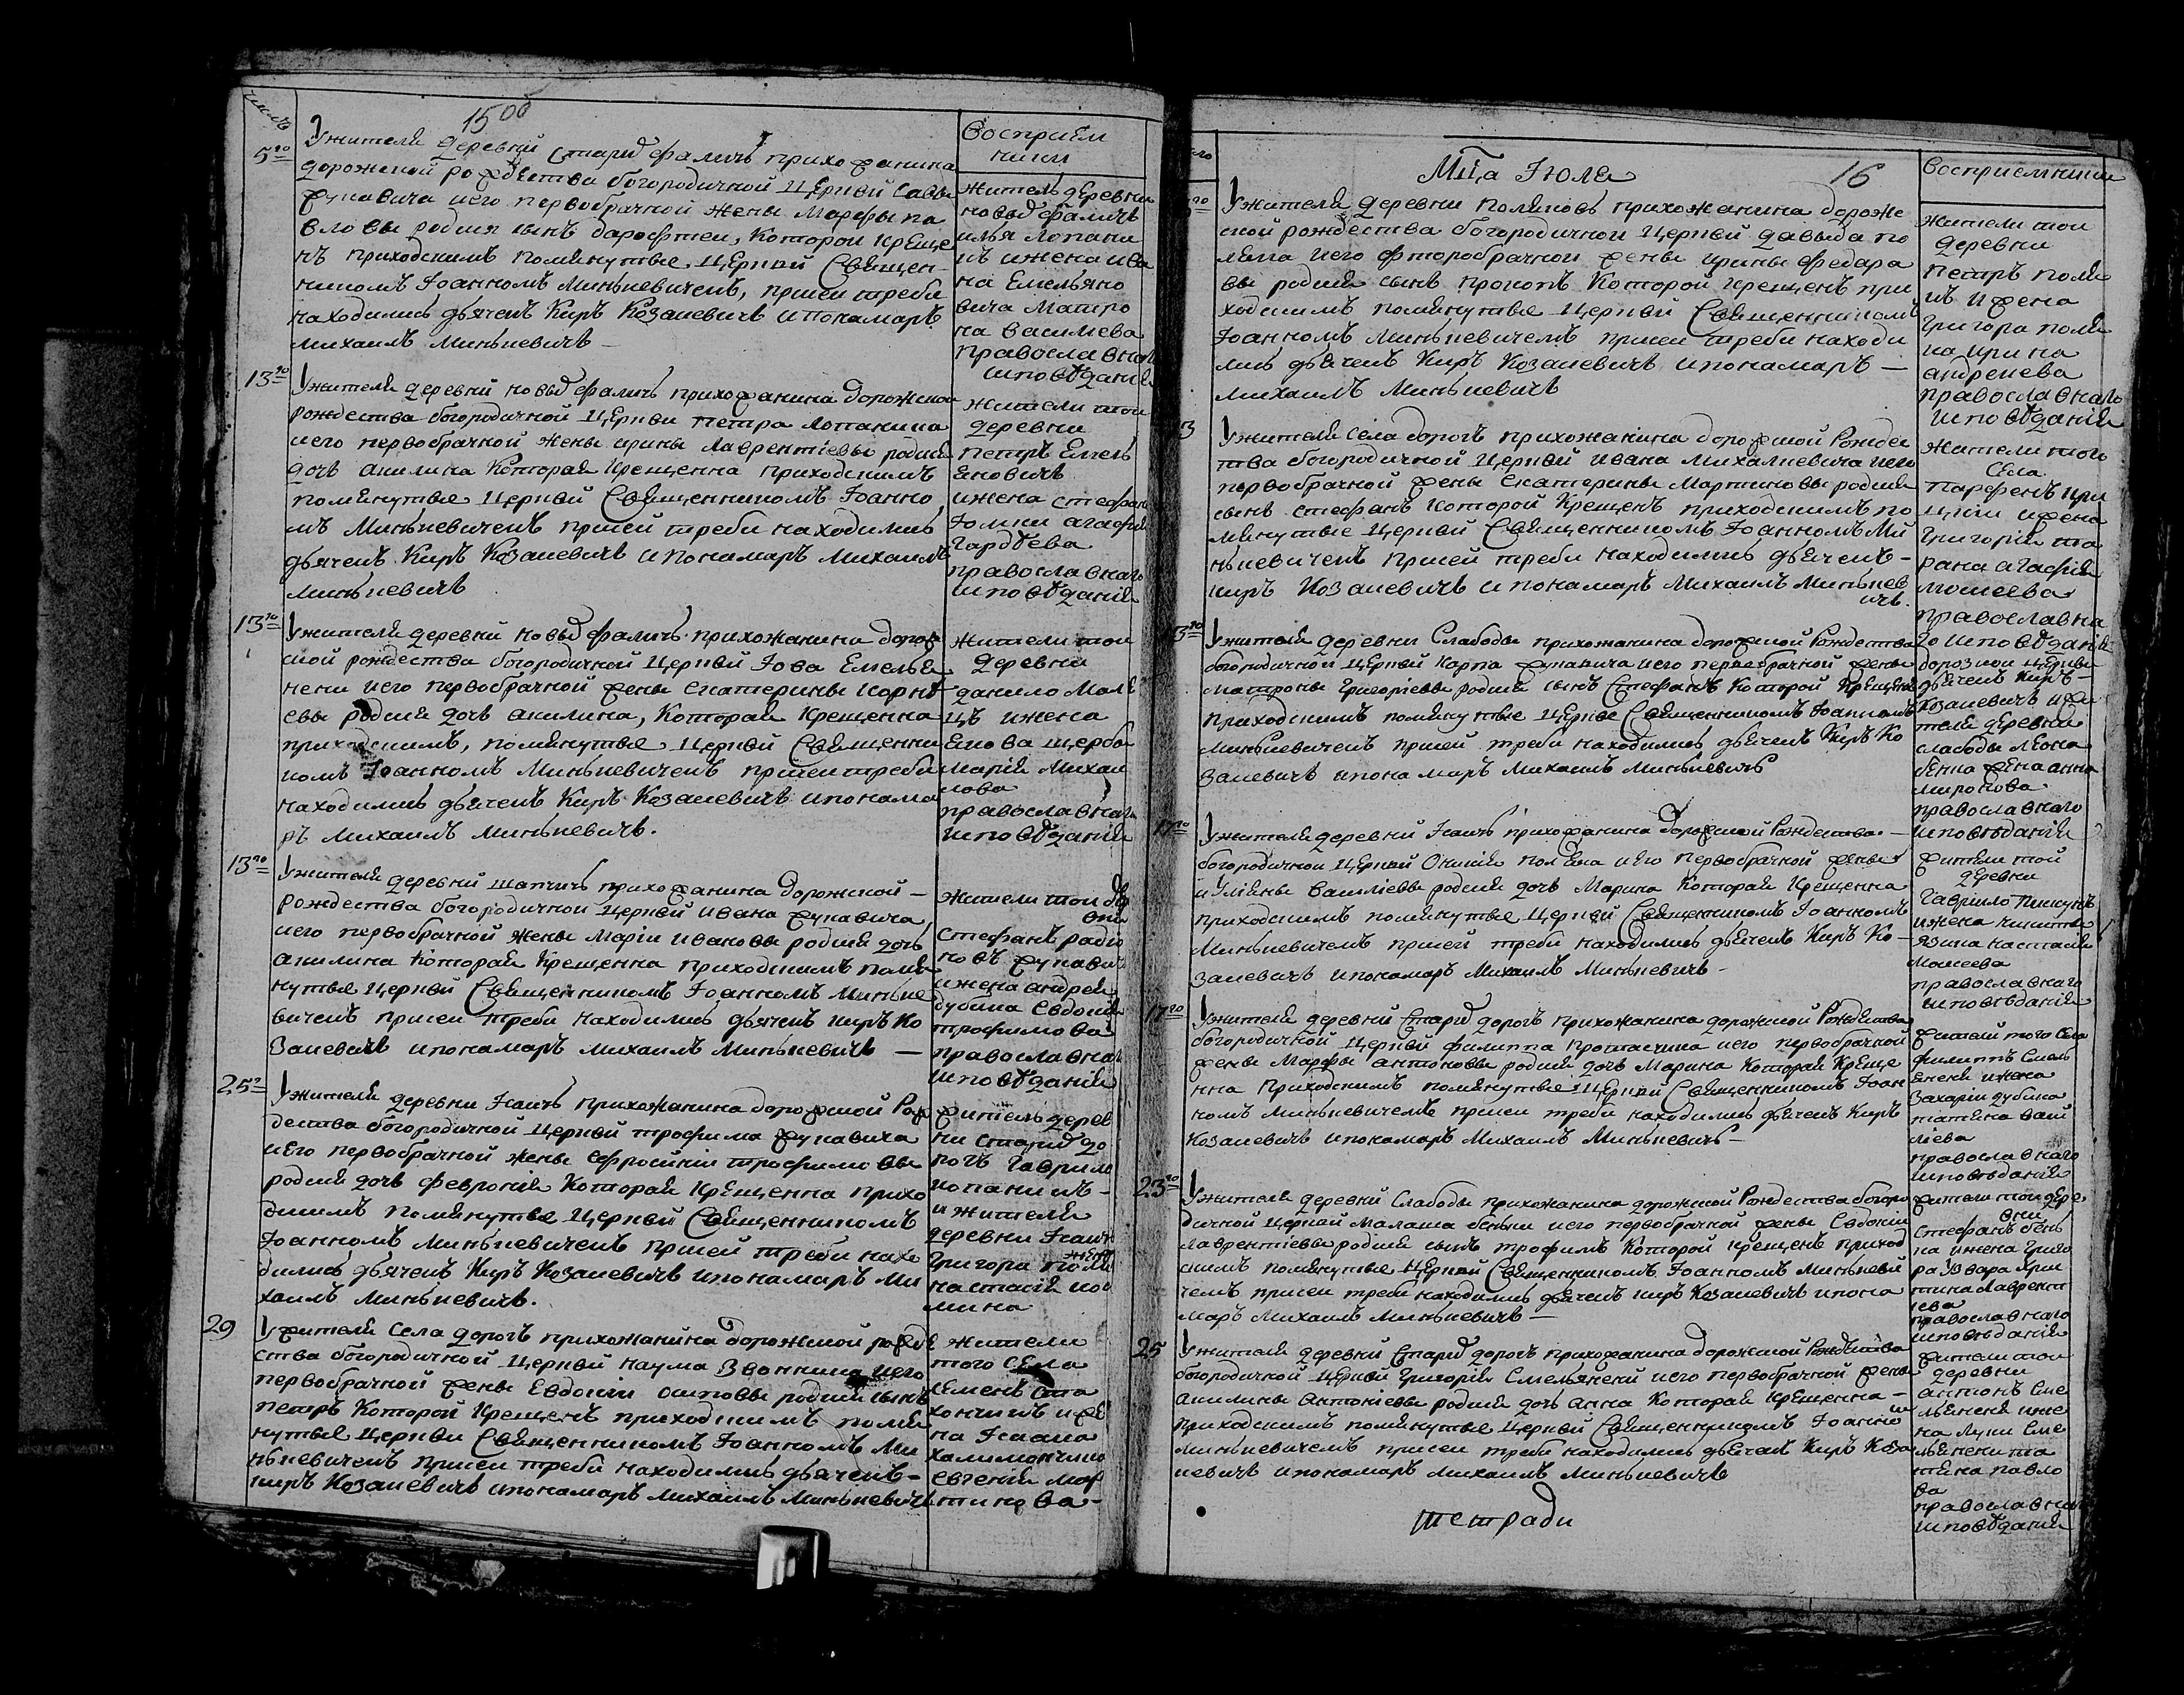 числъ
15 об
Восприем
ники
5го
Ужителя деревни Старид фаличъ прихожанина
дорожской рождества богородичной церкви Савы
Фукавича иего первобрачной жены Марфы па
вловы родися сынъ
которой креще
нъ приходскимъ помянутые церкви Священ-
никомъ Иоанномъ Минькевичемъ, присеи треби
находились дьячекъ Киръ Козакевичъ ипонамаръ
Михаилъ Минькевичъ
житель деревни
новыд фаличъ
илья лопани
нъ ижена ива
на Емельяно
вича Матро
на василева
православнаго
исповѣдания
13го
Ужителя деревни новыд фаличъ прихожанина дорожской
рождества богородичной церкви петра лопанина
иего первобрачной жены ирины лаврентиевы родися
дочъ акилина которая крещенна приходскимъ
помянутые церкви Священникомъ Иоанно
мъ Минькевичемъ присеи треби находились
дьячекъ Киръ Козакевичъ ипонамаръ Михаилъ
Минькевичъ
жители тои
деревни
петръ Емель
яновичъ
ижена стефана
Гордѣева
православнаго
исповѣдания
13го
Ужителя деревни новыд фаличъ прихожанина дорож
ской рождества богородичной церкви Иова Емелья
нени иего первобрачной жены екатерины корнѣ
евы родися дочъ акилина, которая крещенна
приходскимъ, помянутые церкви Священни
комъ Иоанномъ Минькевичемъ присеи треби
находились дьячекъ Киръ Козакевичъ ипонама
ръ Михаилъ Минькевичъ.
жители тои
деревни
данило Мале
цъ ижена
якова щерба
мария Михаи
лова
православнаго
исповѣдания
13го
Ужителя деревни шапчичъ прихожанина дорожской
рождества богородичной церкви ивана фукавича
иего первобрачной жены Марии ивановы родися дочъ
акилина которая крещенна приходскимъ помя
нутыя церкви Священникомъ Иоанномъ Миньке
вичемъ присеи треби находились дьячекъ киръ Ко
закевичъ ипонамаръ Михаилъ Минькевичъ
жители тои дер
вни
стефанъ радио
новъ фукавич
ижена андрея
дубина Евдокия
трофимова
православнаго
исповѣдания
25го
Ужителя деревни Исаичъ прихожанина дорожской Рож
дества богородичной церкви трофима фукавича
иего первобрачной жены Ефросинии трофимовы
родися дочъ феврония которая крещенна прихо
дскимъ помянутые церкви Священникомъ
Иоанномъ Минькевичемъ присеи треби нахо
дились дьячекъ Киръ Козакевичъ ипонамаръ Ми
хаилъ Минькевичъ.
житель дерев
ни старид до
рогъ Гаврило
лопанинъ
и жителя
деревни Исаич
Григора поля
жена
настасия коз
мина
29
Ужителя села дорогъ прихожанина дорожской рожде
ства богородичной церкви наума Звонкина иего
первобрачной жены Евдокии осиповы родися сынъ
петръ которой крещенъ приходскимъ помя
нутые церкви Священникомъ Иоанномъ Ми
нькевичемъ присеи треби находились дьячекъ
киръ Козакевичъ ипонамаръ Михаилъ Минькевичъ
жители
того села
семенъ ста
хончикъ иже
на Исаака
халимончика
евгения мар
тинова
Мца Июля
16
Восприемники
Ужителя деревни поляновъ прихожанина дороже
ской рождества богородичнои церкви давыда по
ляка иего фторобрачнои жены ирины федара
вы родися сынъ прокопъ которой крещенъ при
ходскимъ помянутые церкви Священникомъ
Иоанномъ Минькевичемъ присеи треби находи
лись дьячекъ Киръ Козакевичъ ипонамаръ
михаилъ Минькевичъ
жители тои
деревни
петръ поля
къ ижена
Григора поля
ка ирина
андреева
православнаго
исповѣдания
Ужителя села дорогъ прихожанина дорожской Рождес
тва богородичной церкви ивана Михалкевича иего
первобрачной жены екатерины Мартиновы родися
сынъ стефанъ которой крещенъ приходскимъ по
мянутые церкви Священникомъ Иоанномъ Ми
нькевичемъ присеи треби находились дьячекъ
киръ Козакевичъ ипонамаръ Михаилъ Минькев
ичъ.
жители того
села
парфенъ кри
цкии ижена
Григория та
рана агафия
мосеева
православна
го исповѣдания
Ужителя деревни Слабоды прихожанина дорожской Рождества
богородичной церкви карпа фукавича иего первобрачной жены
матроны григориевы родися сынъ стефанъ которой крещенъ
приходскимъ помянутые церкви Священникомъ Иоанномъ
Минькевичемъ присеи треби находились дьячекъ Киръ Ко
закевичъ ипонамаръ Михаилъ Минькевичъ
дорозкои церкви
дьячекъ Киръ
козакевичъ ижи
теля деревни
слабоды леона
бенка жена анна
миронова
православнаго
исповѣдания
17го
Ужителя деревни Исаичъ прихожанина дорожской Рождества
богородичнои церкви Онисия поляка иего первобрачной жены
иулияны василиевы родися дочъ Марина которая крещенна
приходскимъ помянутые церкви Священникомъ Иоанномъ
Минькевичемъ присеи треби находились дьячекъ Киръ Ко
закевичъ ипонамаръ Михаилъ Минькевичъ
жители той
деревни
Гаврило пискунъ
ижена
настасия
Мосеева
православнаго
исповѣдания
17го
Ужителя деревни Старид дорогъ прихожанина дорожской Рождества
богородичной церкви филиппа протасчика иего первобрачной
жены Марфы антоновы родися дочъ Марина которая креще
нна приходскимъ помянутые церкви Священникомъ Иоан
номъ Минькевичемъ присеи треби находились дьячекъ Киръ
козакевичъ ипонамаръ Михаилъ Минькевичъ
жители того села
филиппъ Емель
янени ижена
Захарии дубина
татяна васи
лиева
православнаго
исповѣдания
23го
Ужителя деревни Слабоды прихожанина дорожской Рождества богоро
дичной церкви Малаша бенки иего первобрачной жены Евдокии
лаврентиевы родися сынъ трофимъ которой крещенъ приход
скимъ помянутые церкви Священникомъ Иоанномъ Минькеви
чемъ присеи треби находились дьячекъ киръ Козакевичъ ипона
маръ Михаилъ Минькевичъ
жители тои дере
вни
Стефанъ бень
ка ижена Григо
ра Увара хри
стина лаврент
иева
православнаго
исповѣдания
25
Ужителя деревни Старид дорогъ прихожанина дорожской Рождества
богородичной церкви григория Емельянени иего первобрачной жены
акилины антониевы родися дочъ анна которая крещенна
приходскимъ помянутые церкви Священникомъ Иоанно
м
Минькевичемъ присеи треби находились дьячекъ Киръ Коза
кевичъ ипонамаръ Михаилъ Минькевичъ
жители тои
деревни
антонъ Еме
льяненя иже
на луки Еме
льянени та
тяна павло
ва
православнаго
исповѣдания
тетради